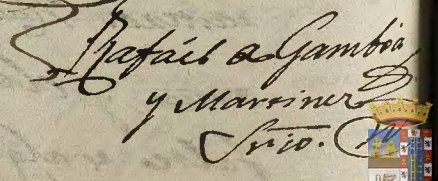 Rafáel a Gamboa
y Martinez
Srio.